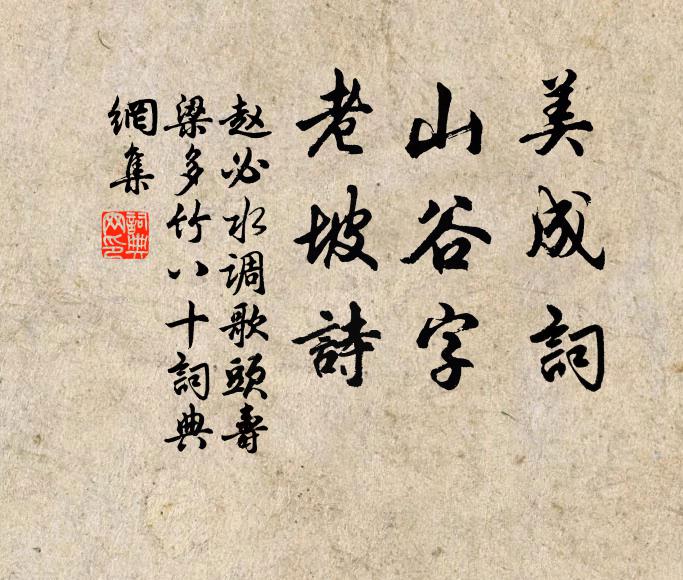 美成詞
山谷字
老坡詩
赵必水调歌頭壽
梁多竹八十詞典
網集
詞典網印